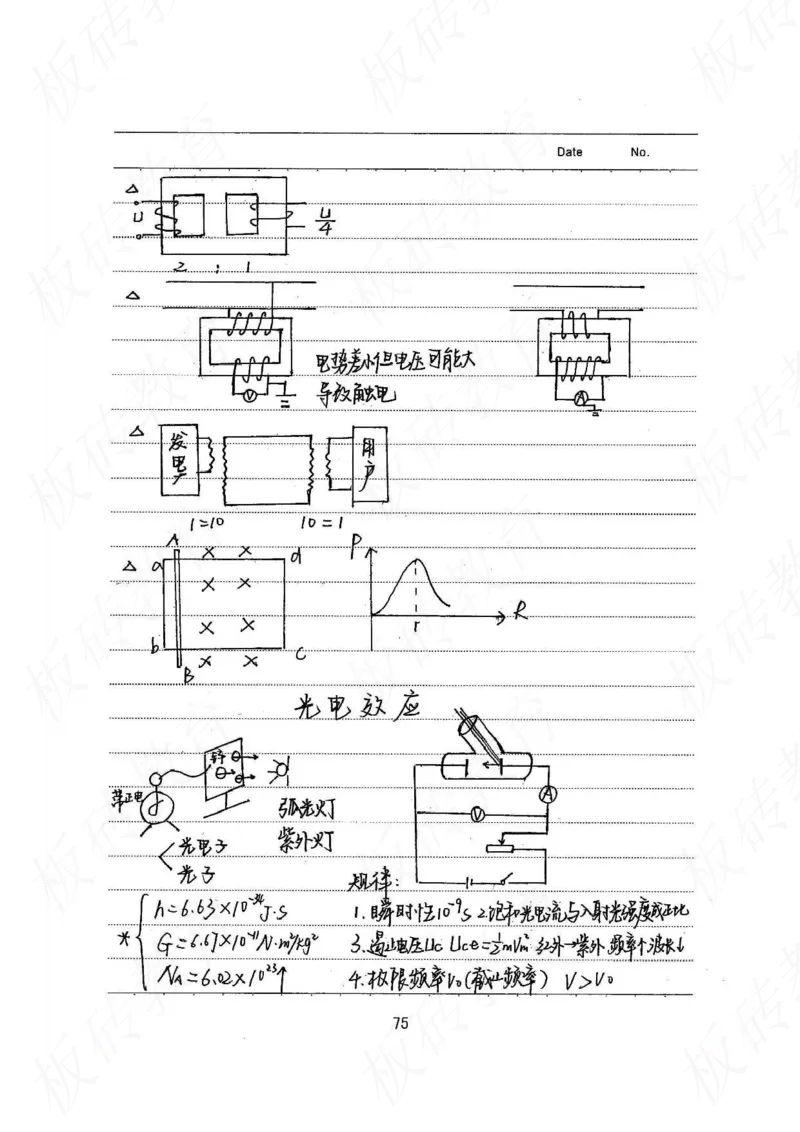 Date No.
△
U U/4
2 : 1
△
电势差小但电压可能大
V 导致触电 A
△
发电厂 用户
1=10 10=1
A P
△ a d
r R
b c
B
光电效应
锌
带正电 弧光灯 A
紫外灯 V
光电子
光子
规律:
h=6.63×10⁻³⁴J·S 1.瞬时性10⁻⁹s 2.饱和光电流与入射光强度成正比
* G=6.67×10⁻¹¹N·m²/kg² 3.遏止电压Uc Uce=½mVm² 红外→紫外 频率↑波长↓
NA=6.02×10²³↑ 4.极限频率ν₀(截止频率) V>V₀
75
板砖教育